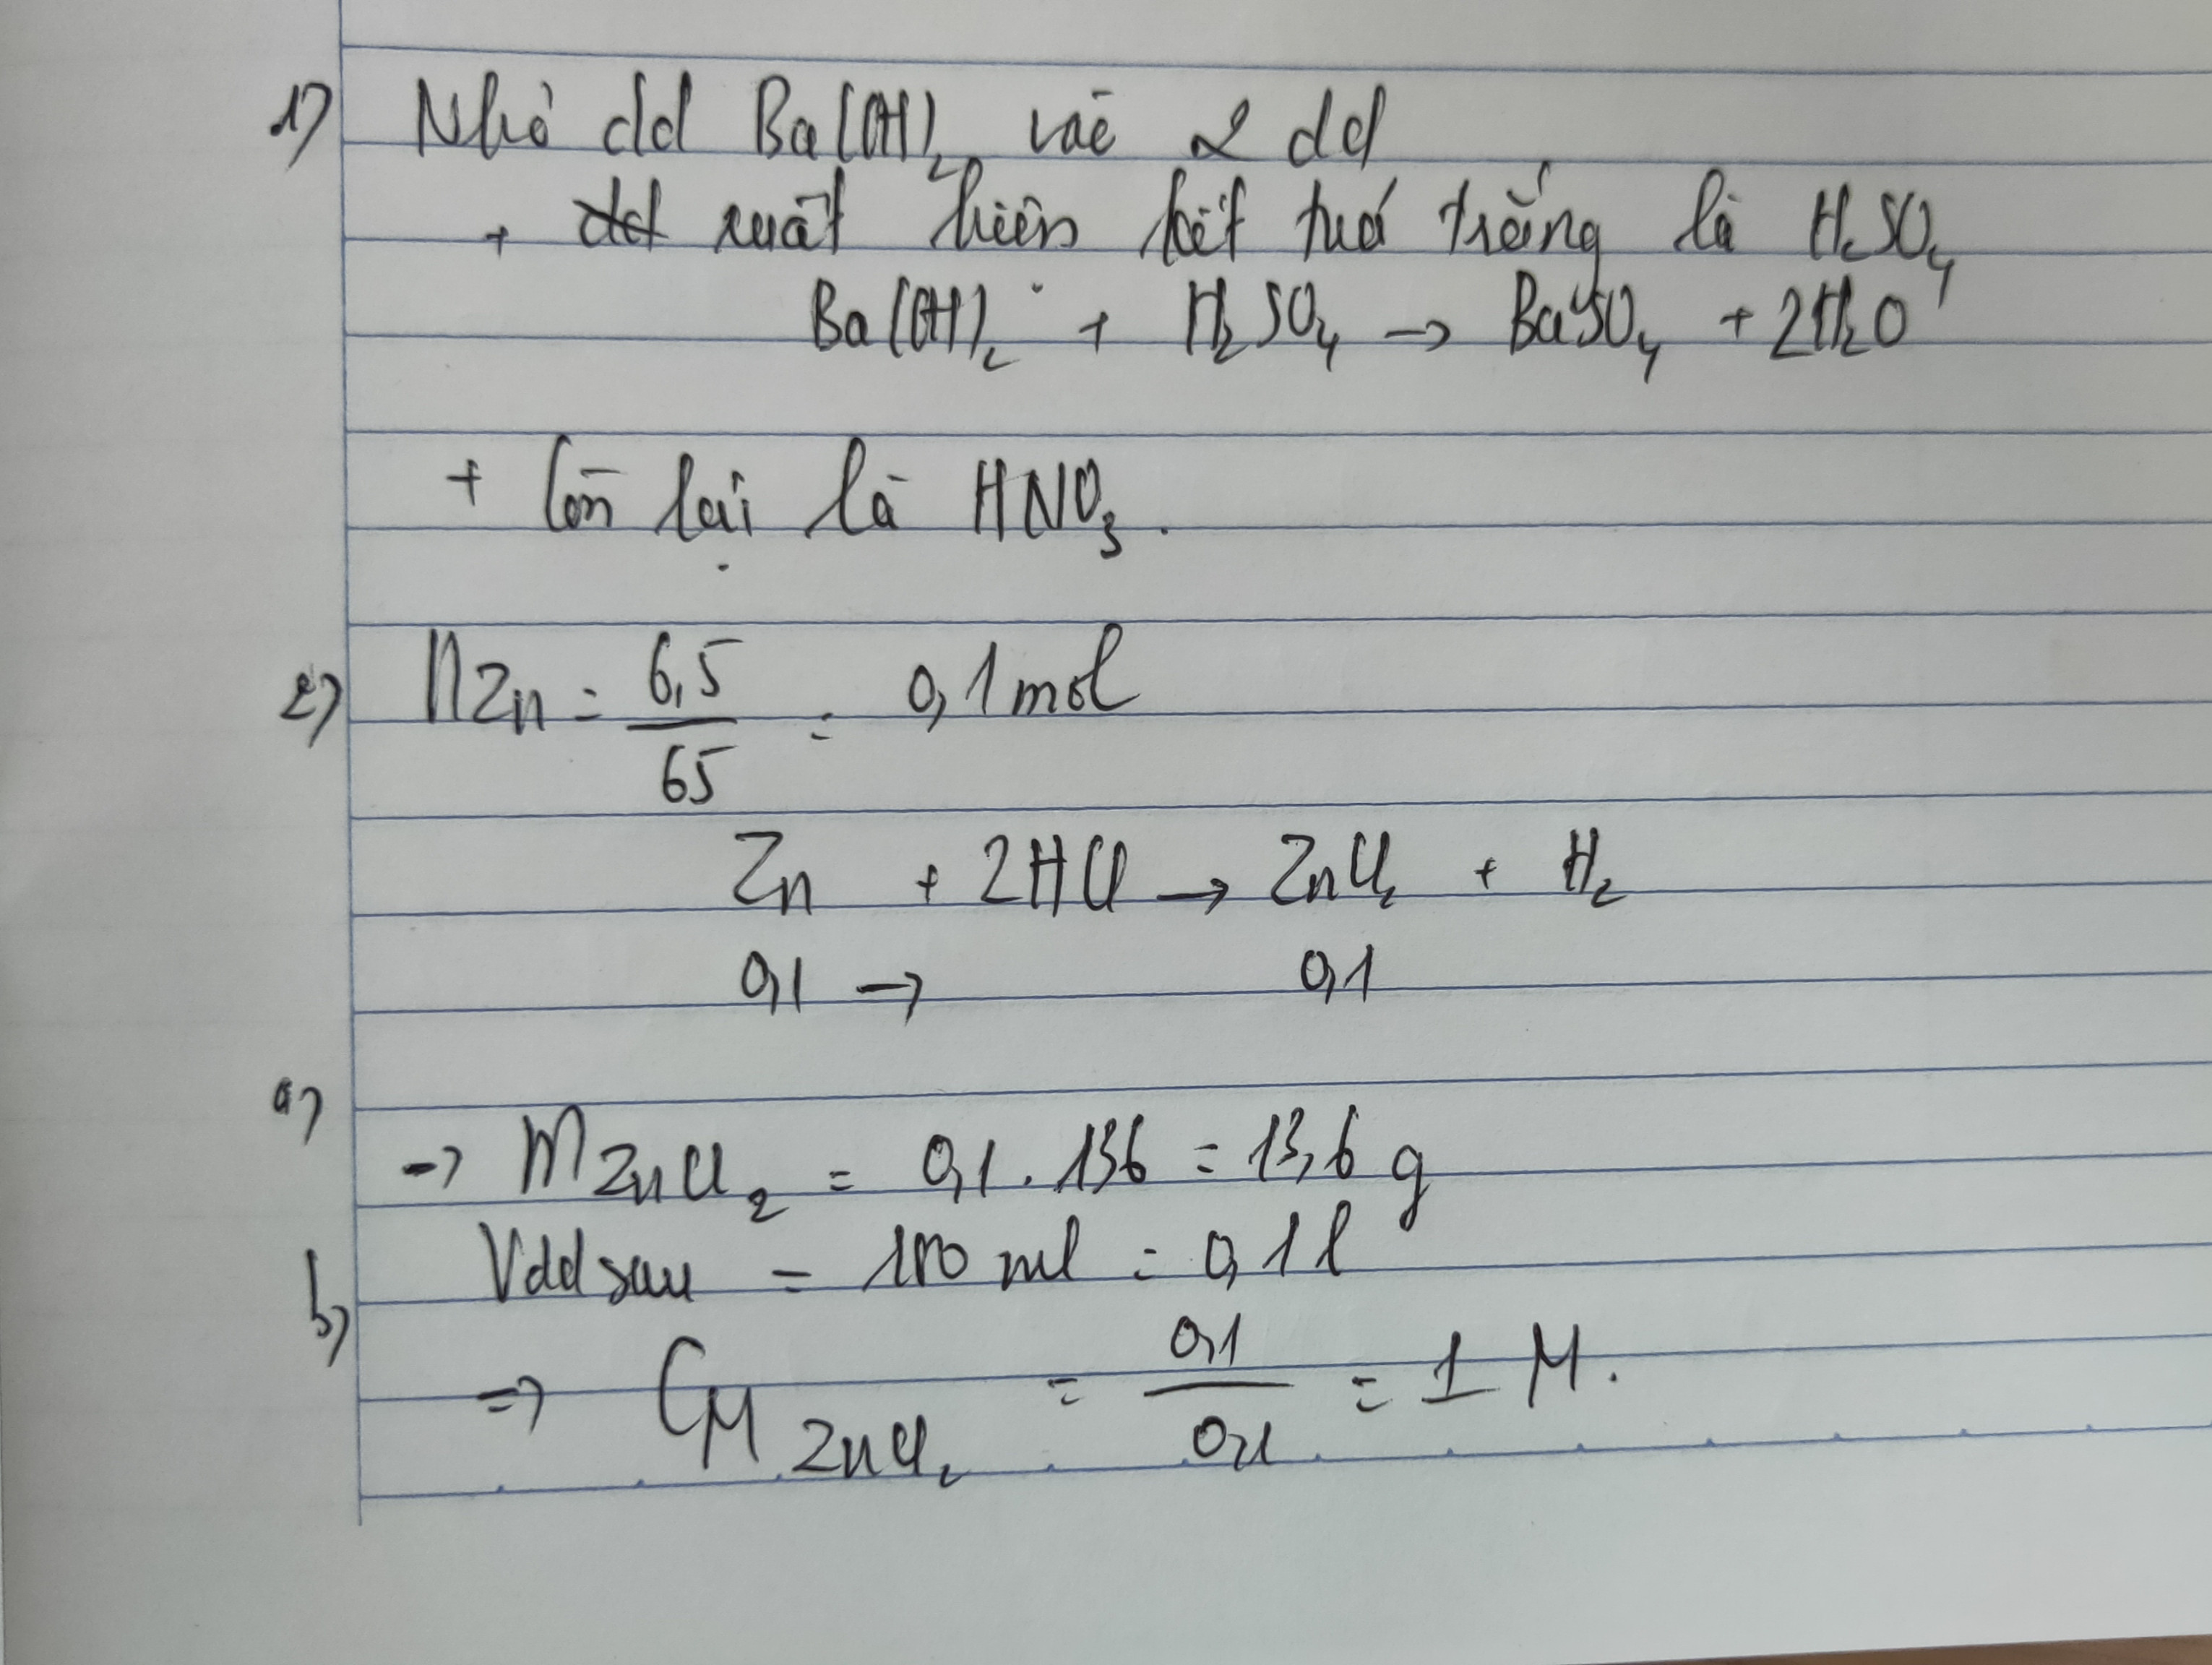 1) Nhỏ dd Ba(OH)₂ vào 2 dd
+ dd xuất hiện kết tủa trắng là H₂SO₄
Ba(OH)₂ + H₂SO₄ → BaSO₄ + 2H₂O
+ Còn lại là HNO₃.
2) nZn = 6,5/65 = 0,1 mol
Zn + 2HCl → ZnCl₂ + H₂
0,1 → 0,1
a)
→ mZnCl₂ = 0,1 . 136 = 13,6 g
b) Vdd sau = 100 ml = 0,1 l
⇒ CM ZnCl₂ = 0,1/0,1 = 1 M.